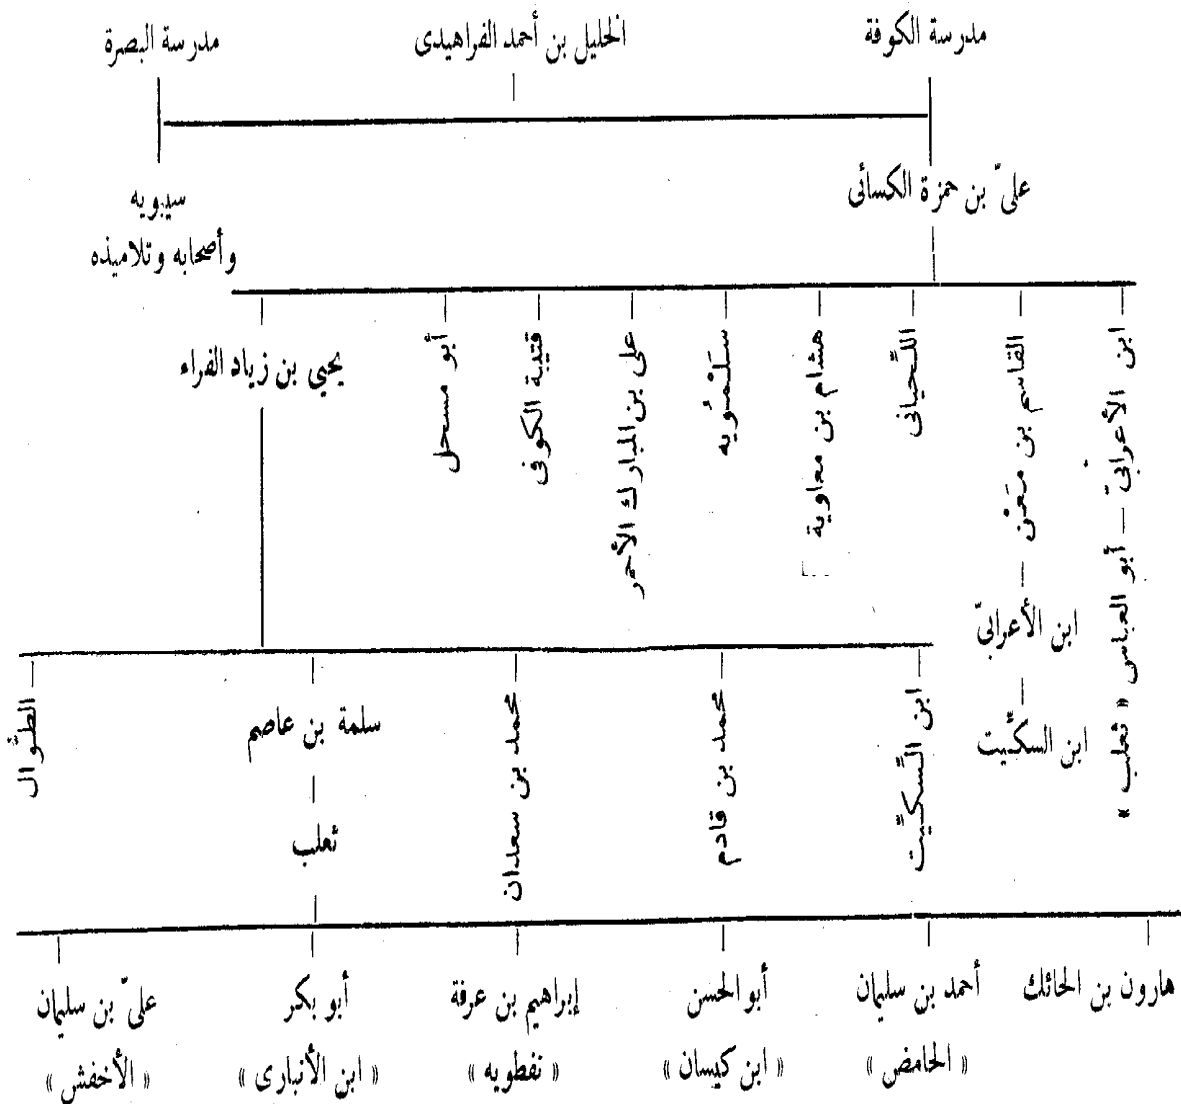 مدرسة الكوفة
الخليل بن أحمد الفراهيدى
مدرسة البصرة
علىّ بن حمزة الكسائى
سيبويه
وأصحابه وتلاميذه
ابن الأعرابىّ — أبو العباس « ثعلب »
القاسم بن مَعْن
ابن الأعرابىّ
ابن السكّيت
اللّحيانى
هشام بن معاوية
سَلْمُويه
على بن المبارك الأحمر
قتيبة الكوفى
أبو مسحل
يحيى بن زياد الفراء
ابن السّكّيت
محمد بن قادم
محمد بن سعدان
سلمة بن عاصم
ثعلب
الطّوال
هارون بن الحائك
أحمد بن سليمان
« الحامض »
أبو الحسن
« ابن كيسان »
إبراهيم بن عرفة
« نفطويه »
أبو بكر
« ابن الأنبارى »
علىّ بن سليمان
« الأخفش »